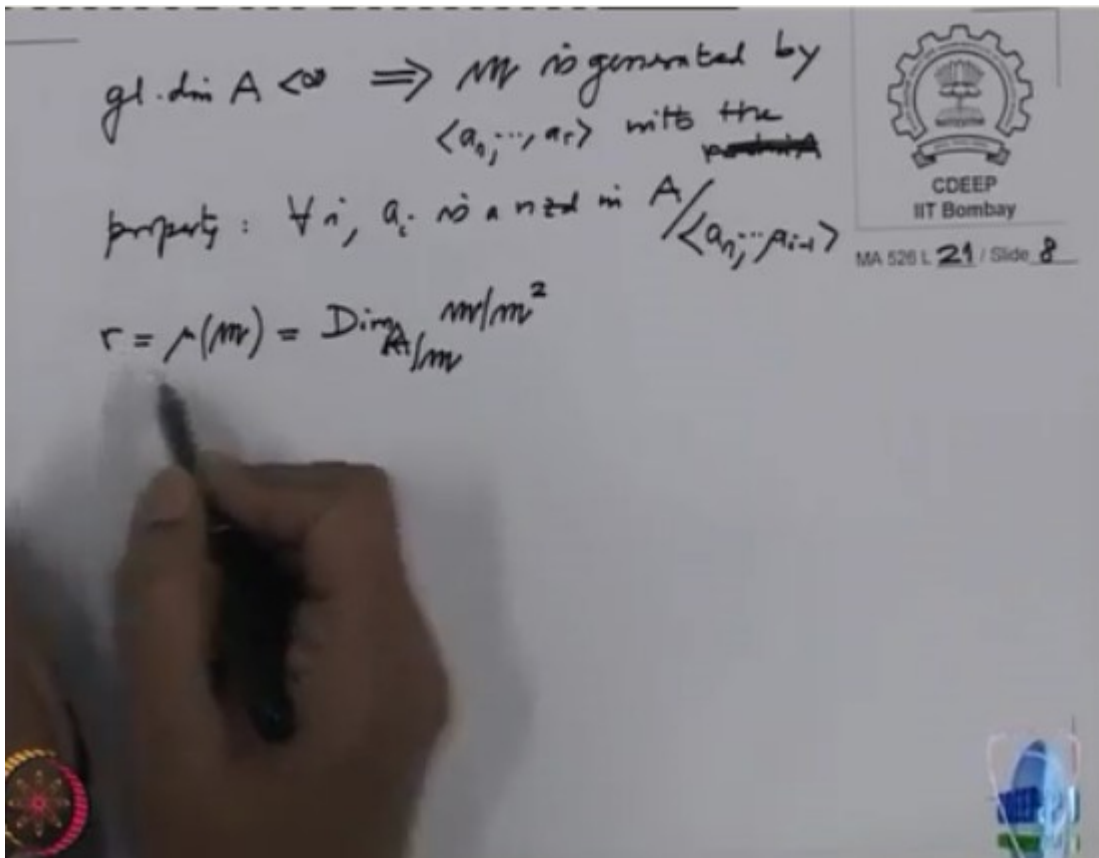 gl. dim A < ∞ ⟹ 𝔪 is generated by
⟨a₁, ..., aᵣ⟩ with the
property : ∀ i, aᵢ is a nzd in A/⟨a₁, ..., aᵢ₋₁⟩
r = μ(𝔪) = Dim_{A/𝔪} 𝔪/𝔪²
CDEEP
IIT Bombay
MA 526 L 21 / Slide 8